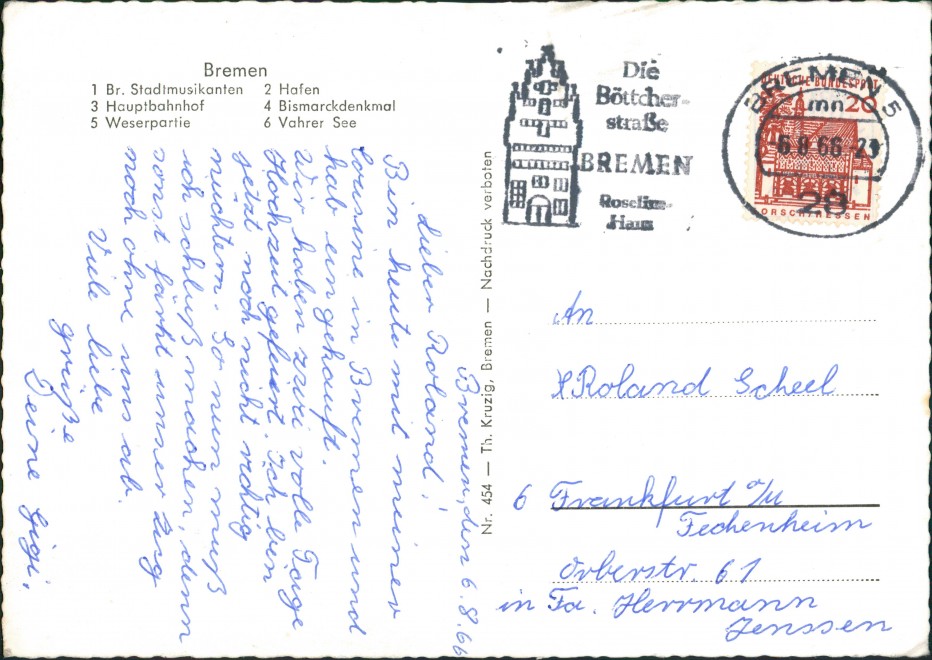 Bremen
1 Br. Stadtmusikanten 2 Hafen
3 Hauptbahnhof 4 Bismarckdenkmal
5 Weserpartie 6 Vahrer See
Bremen, den 6.8.66
Lieber Roland!
Bin heute mit meiner
Cousine in Bremen und
hab eingekauft.
Wir haben zwei volle Tage
Hochzeit gefeiert. Ich bin
jetzt noch nicht richtig
nüchtern. So nun muß
ich schluß machen, denn
sonst färht unser Zug
noch ohne uns ab.
Viele liebe
grüße
Deine Gigi.
Nr. 454 — Th. Kruzig, Bremen — Nachdruck verboten
Die
Böttcher-
straße
BREMEN
Roselius-
Haus
BREMEN 5
mn
-6.8.66-21
28
DEUTSCHE BUNDESPOST
20
LORSCH/HESSEN
An
Roland Scheel
6 Frankfurt a/M
Fechenheim
Orberstr. 61
in Fa. Herrmann
Jenssen